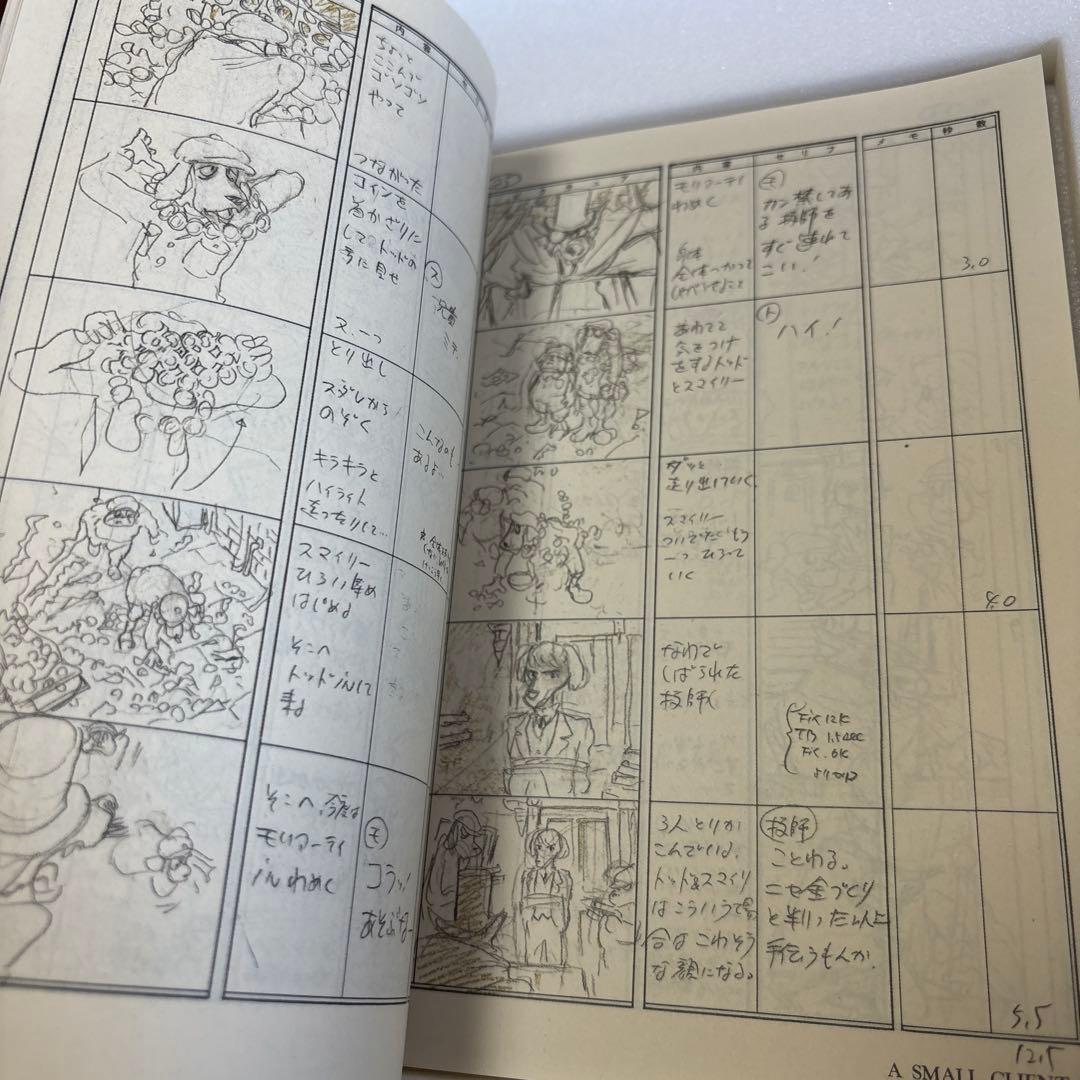 内容
ちょっと
ここんで
ゴソゴソ
やって
つながった
コインを
首かざりに
して、トッドの
方に見せ
ス
ス、一つ
とり出し
スダレから
のぞく
キラキラと
ハイライト
走ったりして…
こんなのも
あるよ…
スマイリー
ひろい集め
はじめる
そこへ
トッドにんして
来る
そこへ、今度は
モリアーティ
わめく
モ
コラッ!
あそぶなー
内容
セリフ
メモ
秒数
モリアーティ
わめく
身体
全体つかって
モ
カン禁してあ
る技師を
すぐ連れて
こい!
3.0
あわてて
気をつけ
をするトッド
とスマイリー
ト
ハイ!
ダッと
走り出していく
スマイリー
ついでだ もう
一つ ひろって
いく
4.0
なわで
しばられた
技師
Fix 12K
TB 1.5sec
Fix 6K
3人とりか
こんでいる。
トッド&スマイリ
はこういう場
合は こわそう
な顔になる。
技師
ことわる。
ニセ金づくり
と判った以上
手伝うもんか。
5.5
12.5
A SMALL CLIENT